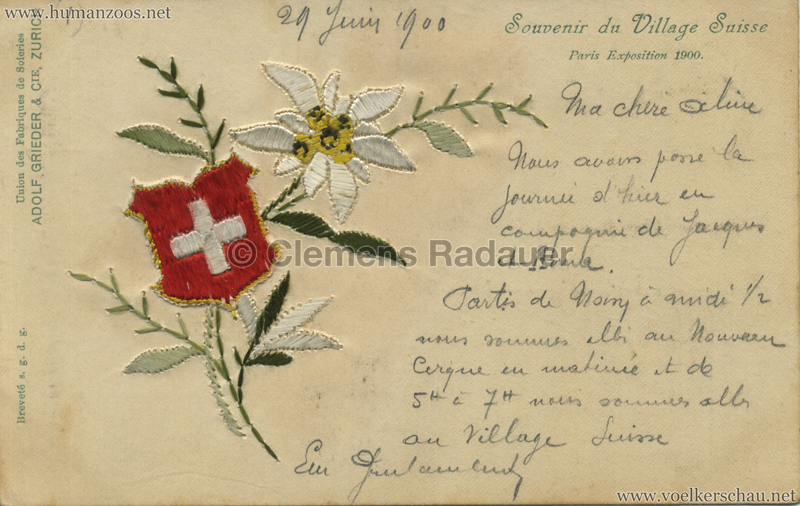 www.humanzoos.net
29 Juin 1900
Souvenir du Village Suisse
Paris Exposition 1900.
Union des Fabriques de Soieries
ADOLF GRIEDER & CIE, ZURICH
Breveté s. g. d. g.
Ma chère
Nous avons passé la
journée d'hier en
compagnie de Jacques
© Clemens Radauer
Partis de Noisy à midi 1/2
nous sommes allés au Nouveau
Cirque en matinée et de
5H à 7H nous sommes allés
au Village Suisse
www.voelkerschau.net